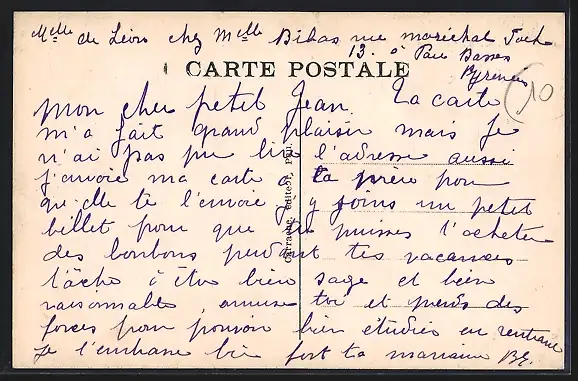 Melle de Léon chez Melle Bibas rue maréchal Foch
13. à Pau Basses
Pyrénées
CARTE POSTALE
10
mon cher petit Jean. Ta carte
m'a fait grand plaisir mais je
n'ai pas pu lire l'adresse aussi
j'envoie ma carte a ta mère pour
qu'elle te l'envoie j'y joins un petit
billet pour que tu puisses t'acheter
des bonbons pendant tes vacances
tâche à être bien sage et bien
raisonnable, amuse toi et prends des
forces pour pouvoir bien étudier en rentrant
je t'embrasse bien fort ta marraine
Carrache, éditeur, Pau.